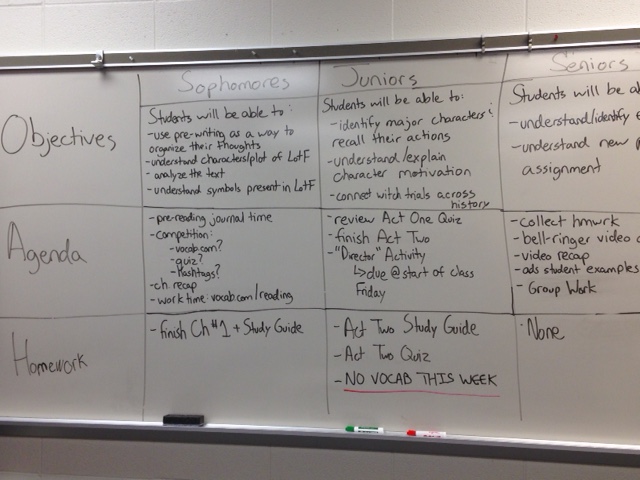 Sophomores
Juniors
Seniors
Objectives
Students will be able to:
-use pre-writing as a way to
organize their thoughts
-understand characters/plot of LotF
- analyze the text
-understand symbols present in LotF
Students will be able to:
-identify major characters &
recall their actions
-understand/explain
character motivation
-connect witch trials across
history
Students will be a
-understand/identify
-understand new
assignment
Agenda
-pre-reading journal time
-competition:
-vocab.com?
-quiz?
-hashtags?
-ch. recap
-work time: vocab.com/reading
-review Act One Quiz
-finish Act Two
-"Director" Activity
↳due @ start of class
Friday
-collect hmwrk
-bell-ringer video
-video recap
-ads student examples
- Group Work
Homework
-finish Ch #1 + Study Guide
-Act Two Study Guide
-Act Two Quiz
-NO VOCAB THIS WEEK
·None